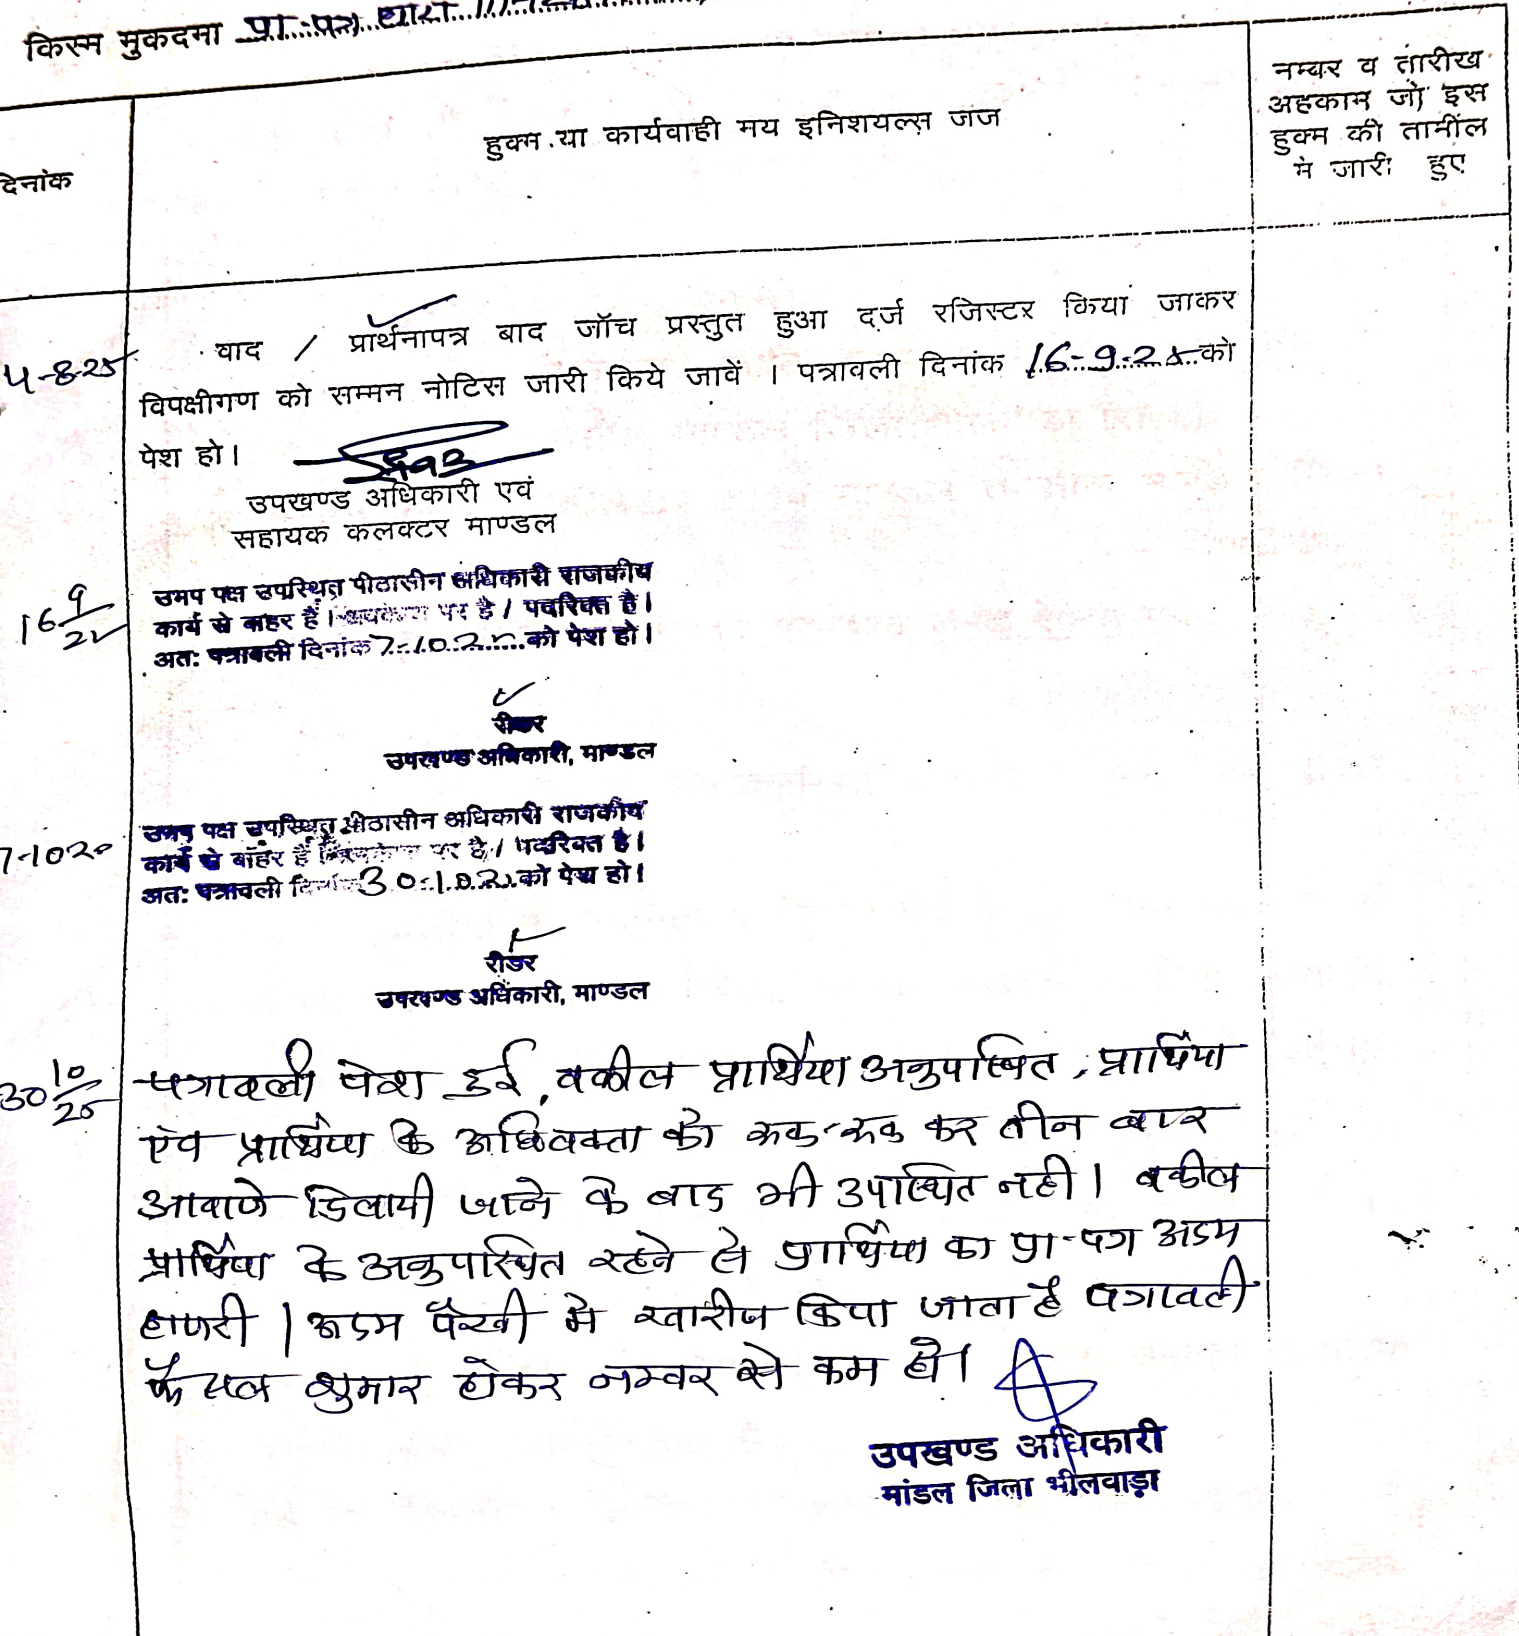 किस्म मुकदमा प्रा.पत्र धारा
दिनांक
हुक्म या कार्यवाही मय इनिशयल्स जज
नम्बर व तारीख
अहकाम जो इस
हुक्म की तामील
में जारी हुए
4-8-25
वाद / प्रार्थनापत्र बाद जॉच प्रस्तुत हुआ दर्ज रजिस्टर किया जाकर
विपक्षीगण को सम्मन नोटिस जारी किये जावें । पत्रावली दिनांक 16-9-25 को
पेश हो।
उपखण्ड अधिकारी एवं
सहायक कलक्टर माण्डल
16 9/25
उभय पक्ष उपस्थित पीठासीन अधिकारी राजकीय
कार्य से बाहर हैं । अवकाश पर है / पदरिक्त है।
अतः पत्रावली दिनांक 7-10-25 को पेश हो।
रीडर
उपखण्ड अधिकारी, माण्डल
उभय पक्ष उपस्थित पीठासीन अधिकारी राजकीय
7-10-20
कार्य से बाहर हैं पर है / पदरिक्त है।
अतः पत्रावली दिनांक 30-10-2 को पेश हो।
रीडर
उपखण्ड अधिकारी, माण्डल
30 10/25
पत्रावली पेश हुई, वकील प्रार्थिया अनुपस्थित, प्रार्थिया
एंव प्रार्थिया के अधिवक्ता को रूक-रूक कर तीन बार
आवाजे दिलायी जाने के बाद भी उपस्थित नही। वकील
प्रार्थिया के अनुपस्थित रहने से प्रार्थिया का प्रा-पत्र अदम
हाजरी / अदम पैरवी मे खारीज किया जाता है पत्रावली
फैसल शुमार होकर नम्बर से कम हो।
उपखण्ड अधिकारी
मांडल जिला भीलवाड़ा